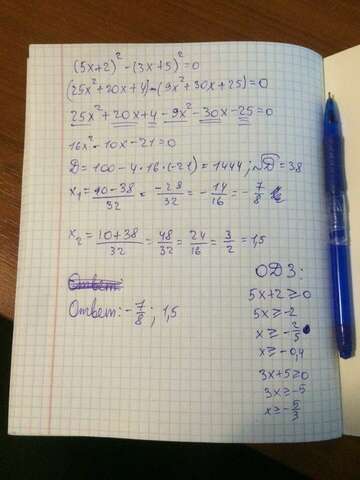 (5x+2)² - (3x+5)² = 0
(25x²+20x+4) - (9x²+30x+25) = 0
25x²+20x+4 - 9x² - 30x - 25 = 0
16x² - 10x - 21 = 0
D = 100 - 4·16·(-21) = 1444; √D = 38
x₁ = 10-38/32 = -28/32 = -14/16 = -7/8
x₂ = 10+38/32 = 48/32 = 24/16 = 3/2 = 1,5
Ответ:
Ответ: -7/8; 1,5
ОДЗ:
5x+2 ≥ 0
5x ≥ -2
x ≥ -2/5
x ≥ -0,4
3x+5 ≥ 0
3x ≥ -5
x ≥ -5/3